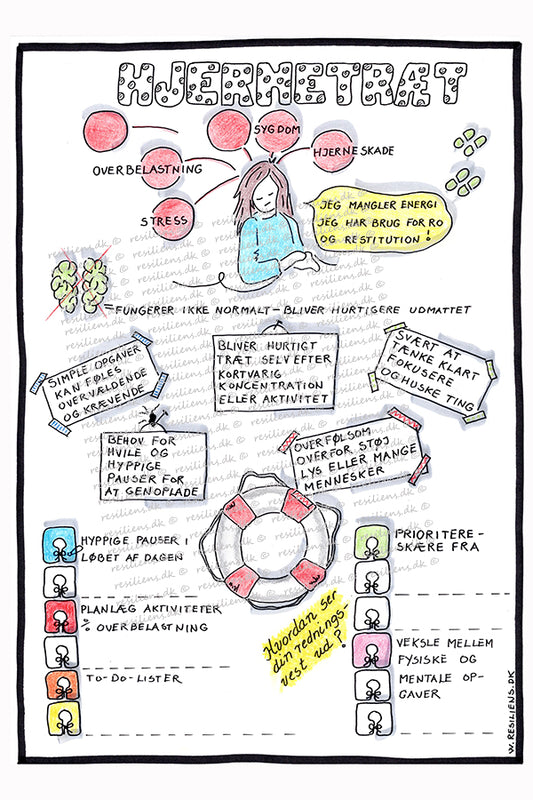 HJERNETRÆT
SYGDOM
HJERNESKADE
OVERBELASTNING
STRESS
JEG MANGLER ENERGI
JEG HAR BRUG FOR RO
OG RESTITUTION!
=FUNGERER IKKE NORMALT - BLIVER HURTIGERE UDMATTET
SIMPLE OPGAVER
KAN FØLES
OVERVÆLDENDE
OG KRÆVENDE
BLIVER HURTIGT
TRÆT SELV EFTER
KORTVARIG
KONCENTRATION
ELLER AKTIVITET
SVÆRT AT
TÆNKE KLART
FOKUSERE
OG HUSKE TING
BEHOV FOR
HVILE OG
HYPPIGE
PAUSER FOR
AT GENOPLADE
OVERFØLSOM
OVERFOR STØJ
LYS ELLER MANGE
MENNESKER
HYPPIGE PAUSER I
LØBET AF DAGEN
PLANLÆG AKTIVITETER
% OVERBELASTNING
TO-DO-LISTER
Hvordan ser
din rednings-
vest ud?
PRIORITERE-
SKÆRE FRA
VEKSLE MELLEM
FYSISKE OG
MENTALE OP-
GAVER
W.RESILIENS.DK
resiliens.dk ©